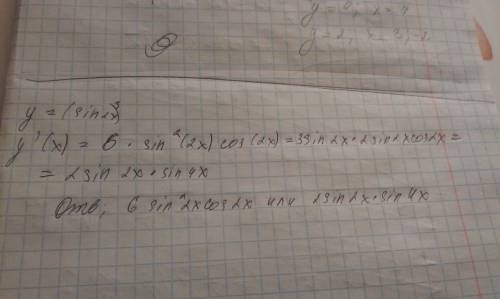 y = (sin2x)³
y'(x) = 6 · sin²(2x) cos(2x) = 3sin2x · 2sin2xcos2x =
= 2sin 2x · sin4x
Отв, 6 sin²2xcos2x или 2sin2x · sin4x